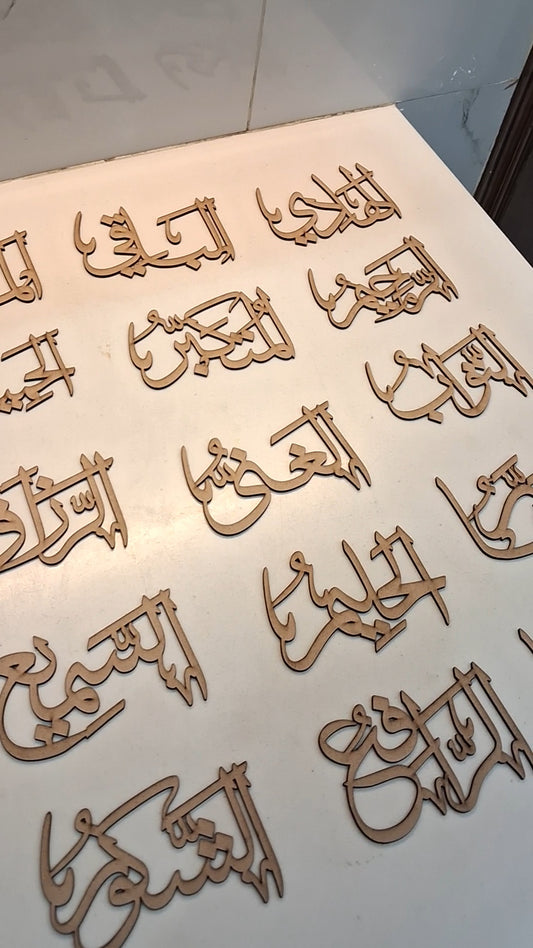 الهادي
الباقي
الرحيم
المتكبر
التواب
الغفور
الرزاق
الحليم
السميع
الرافع
الشكور